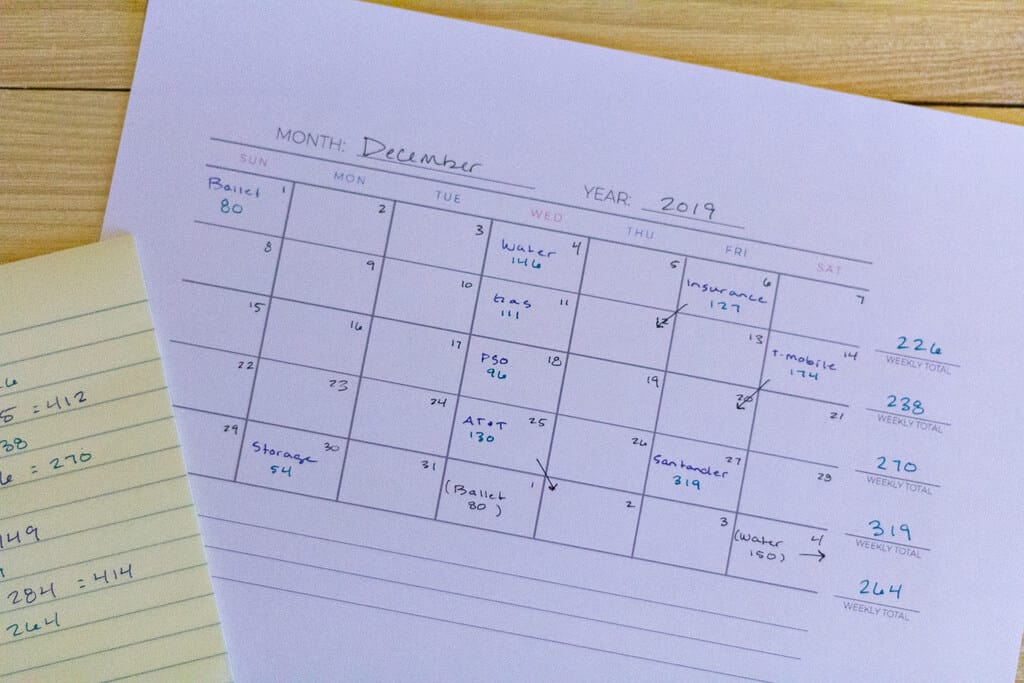 MONTH: December
YEAR: 2019
SUN MON TUE WED THU FRI SAT
Ballet 1 2 3 4 5 6 7
80 Water Insurance
146 127
226
WEEKLY TOTAL
8 9 10 11 12 13 14
Gas T-mobile
111 174
238
WEEKLY TOTAL
15 16 17 18 19 20 21
PSO
96
270
WEEKLY TOTAL
22 23 24 25 26 27 28
AT&T Santander
130 319
319
WEEKLY TOTAL
29 30 31 1 2 3 4
Storage (Ballet (Water
54 80) 150)
264
WEEKLY TOTAL
= 412
38
= 270
149
284 = 414
264